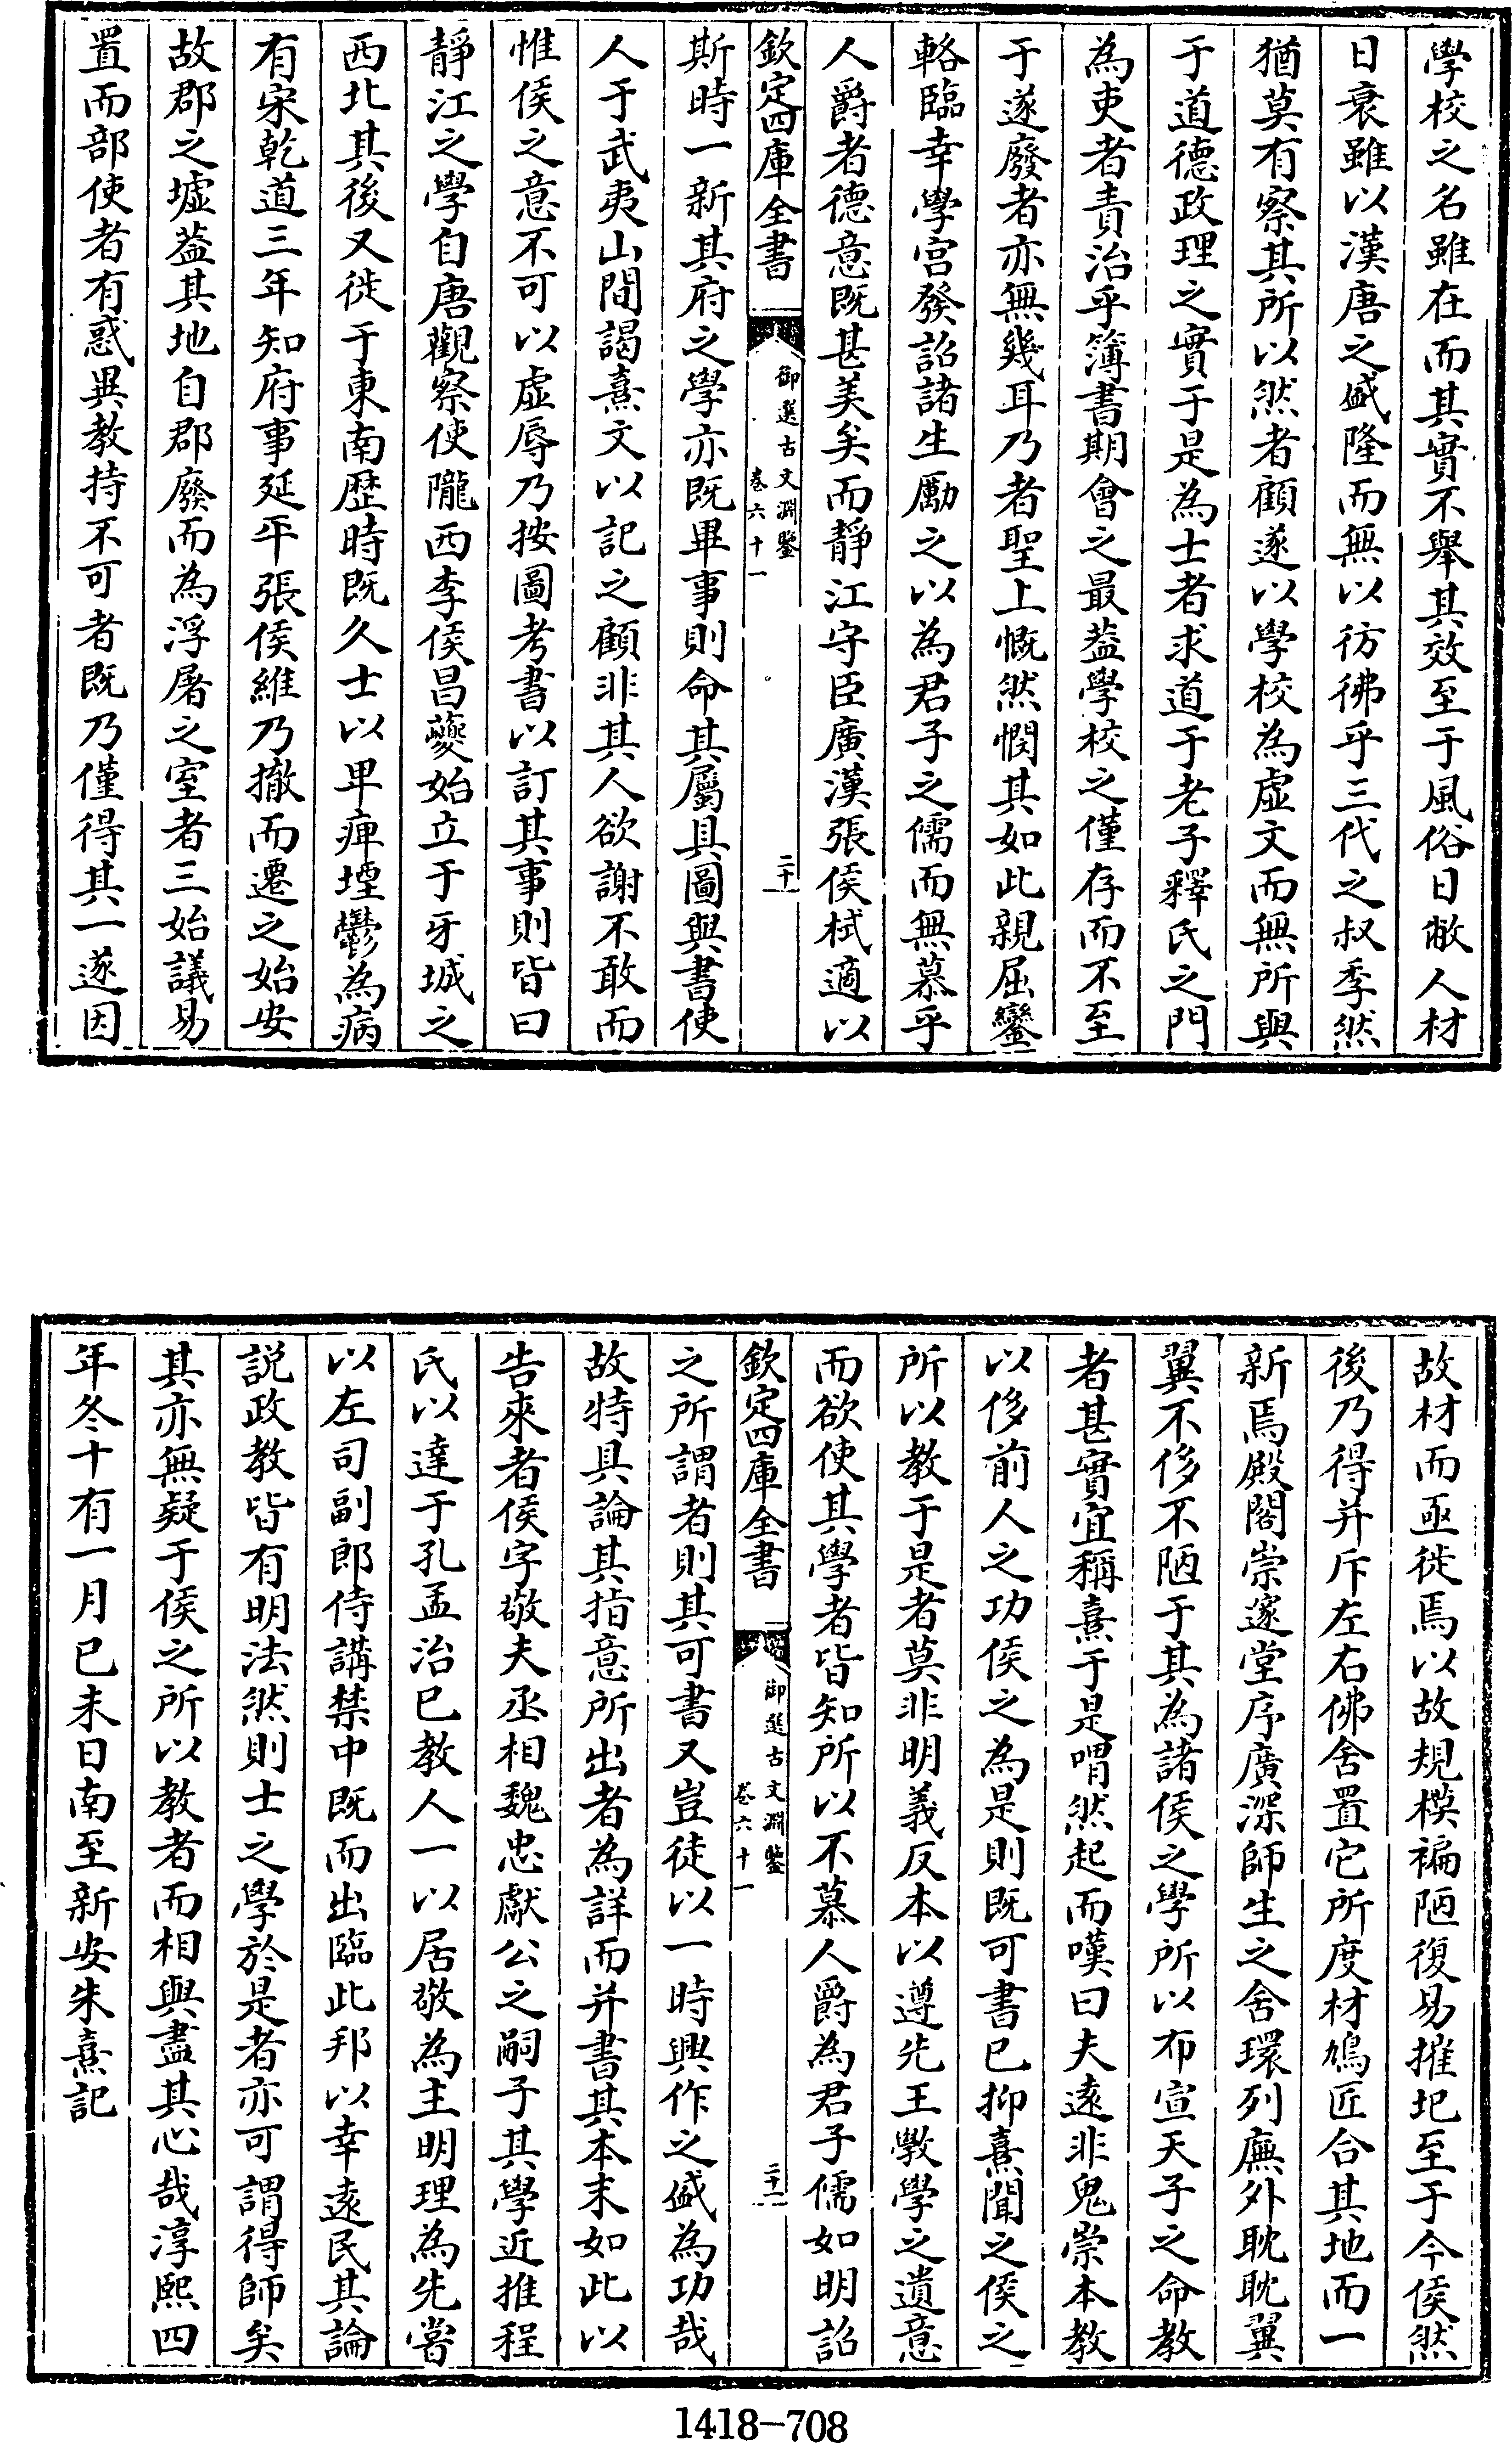 學校之名雖在而其實不舉其效至于風俗日敝人材
日衰雖以漢唐之盛隆而無以彷彿乎三代之叔季然
猶莫有察其所以然者顧遂以學校為虛文而無所與
于道德政理之實于是為士者求道于老子釋氏之門
為吏者責治乎簿書期會之最葢學校之僅存而不至
于遂廢者亦無幾耳乃者聖上慨然憫其如此親屈鑾
輅臨幸學宮發詔諸生勵之以為君子之儒而無慕乎
人爵者德意既甚美矣而靜江守臣廣漢張侯栻適以
欽定四庫全書
御選古文淵鑒
卷六十一
二十
斯時一新其府之學亦既畢事則命其屬具圖與書使
人于武夷山間謁熹文以記之顧非其人欲謝不敢而
惟侯之意不可以虛辱乃按圖考書以訂其事則皆曰
靜江之學自唐觀察使隴西李侯昌夔始立于牙城之
西北其後又徙于東南歷時既久士以卑痺堙鬱為病
有宋乾道三年知府事延平張侯維乃撤而遷之始安
故郡之墟葢其地自郡廢而為浮屠之室者三始議易
置而部使者有惑異教持不可者既乃僅得其一遂因
故材而亟徙焉以故規模褊陋復易摧圯至于今侯然
後乃得并斥左右佛舍置它所度材鳩匠合其地而一
新焉殿閣崇邃堂序廣深師生之舍環列廡外耽耽翼
翼不侈不陋于其為諸侯之學所以布宣天子之命教
者甚實宜稱熹于是喟然起而嘆曰夫遠非鬼崇本教
以侈前人之功侯之為是則既可書已抑熹聞之侯之
所以教于是者莫非明義反本以遵先王斆學之遺意
而欲使其學者皆知所以不慕人爵為君子儒如明詔
欽定四庫全書
御選古文淵鑒
卷六十一
二十一
之所謂者則其可書又豈徒以一時興作之盛為功哉
故特具論其指意所出者為詳而并書其本末如此以
告來者侯字敬夫丞相魏忠獻公之嗣子其學近推程
氏以達于孔孟治已教人一以居敬為主明理為先嘗
以左司副郎侍講禁中既而出臨此邦以幸遠民其論
説政教皆有明法然則士之學於是者亦可謂得師矣
其亦無疑于侯之所以教者而相與盡其心哉淳熙四
年冬十有一月已未日南至新安朱熹記
1418-708